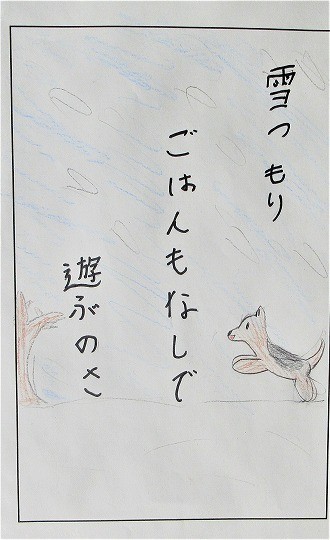 雪つもり
ごはんもなしで
遊ぶのさ